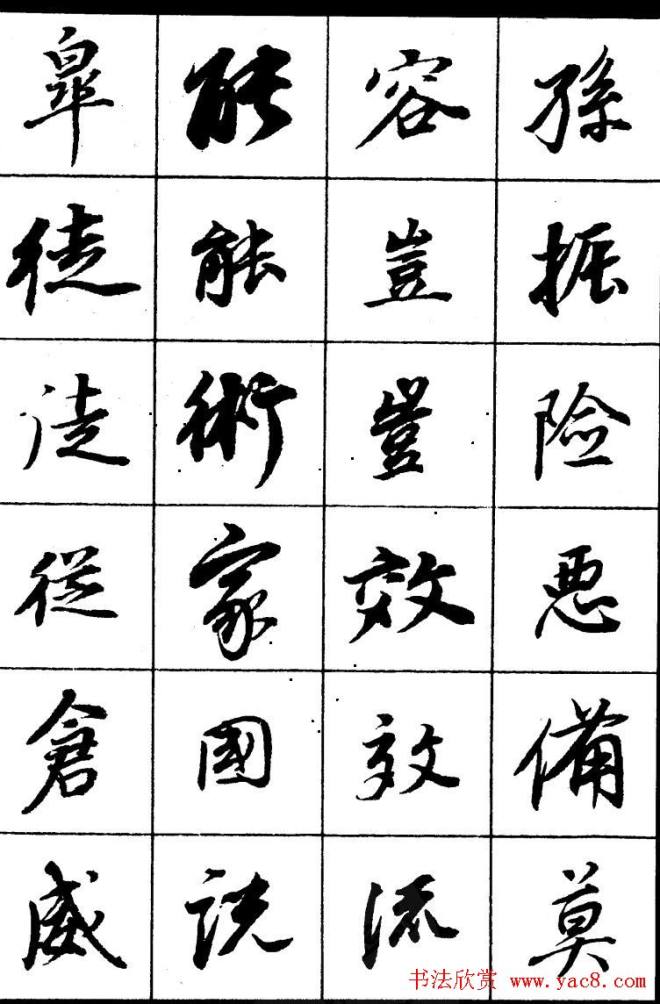 孫振險悪備莫
容豈豈效效流
能能術家國説
皐徒徒從倉威
书法欣赏 www.yac8.com